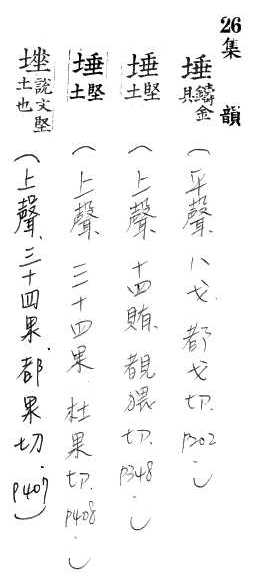 26集韻
埵鑄金具（平聲八戈都戈切.p202.）
埵堅土（上聲十四賄覩猥切.p348.）
埵堅土（上聲三十四果杜果切.p408.）
埵說文堅土也（上聲三十四果.都果切.p407）